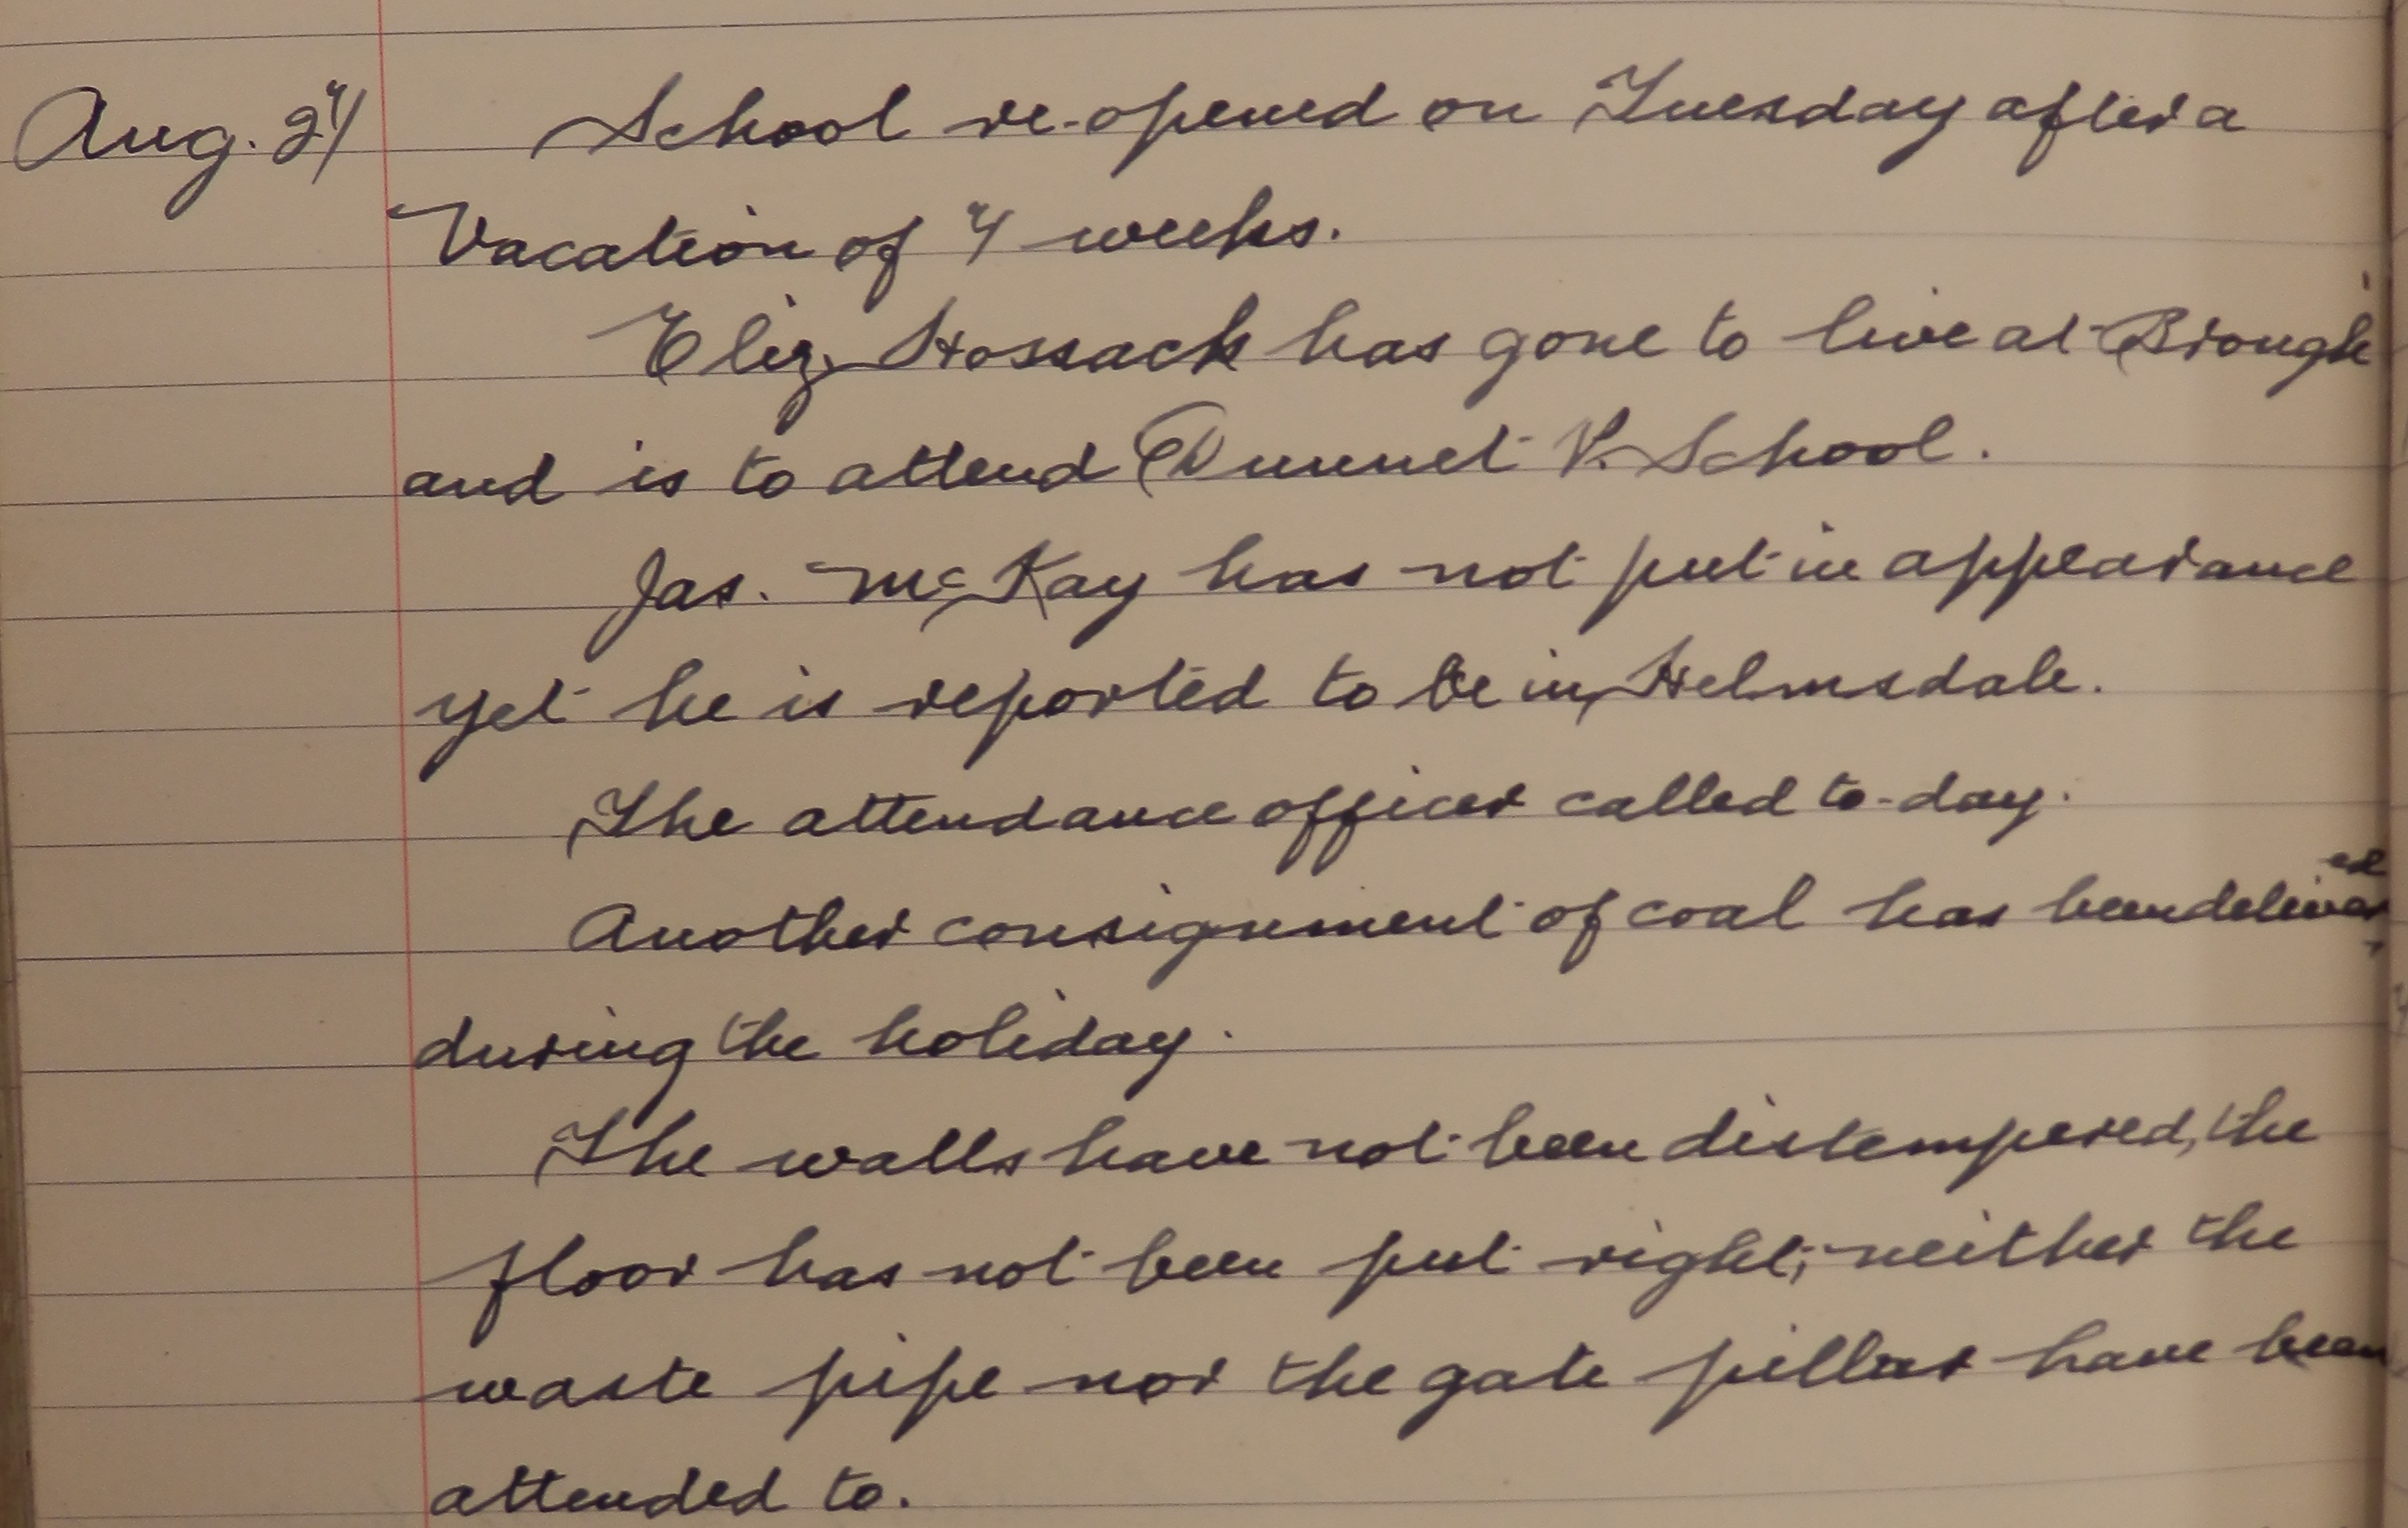 Aug. 24 School re-opened on Tuesday after a
Vacation of 4 weeks.
Eliz. Hossack has gone to live at Brough
and is to attend Dunnet P. School.
Jas. McKay has not put in appearance
yet he is reported to be in Helmsdale.
The attendance officer called to-day.
Another consignment of coal has been delivered
during the holiday.
The walls have not been distempered, the
floor has not been put right; neither the
waste pipe nor the gate pillar have been
attended to.